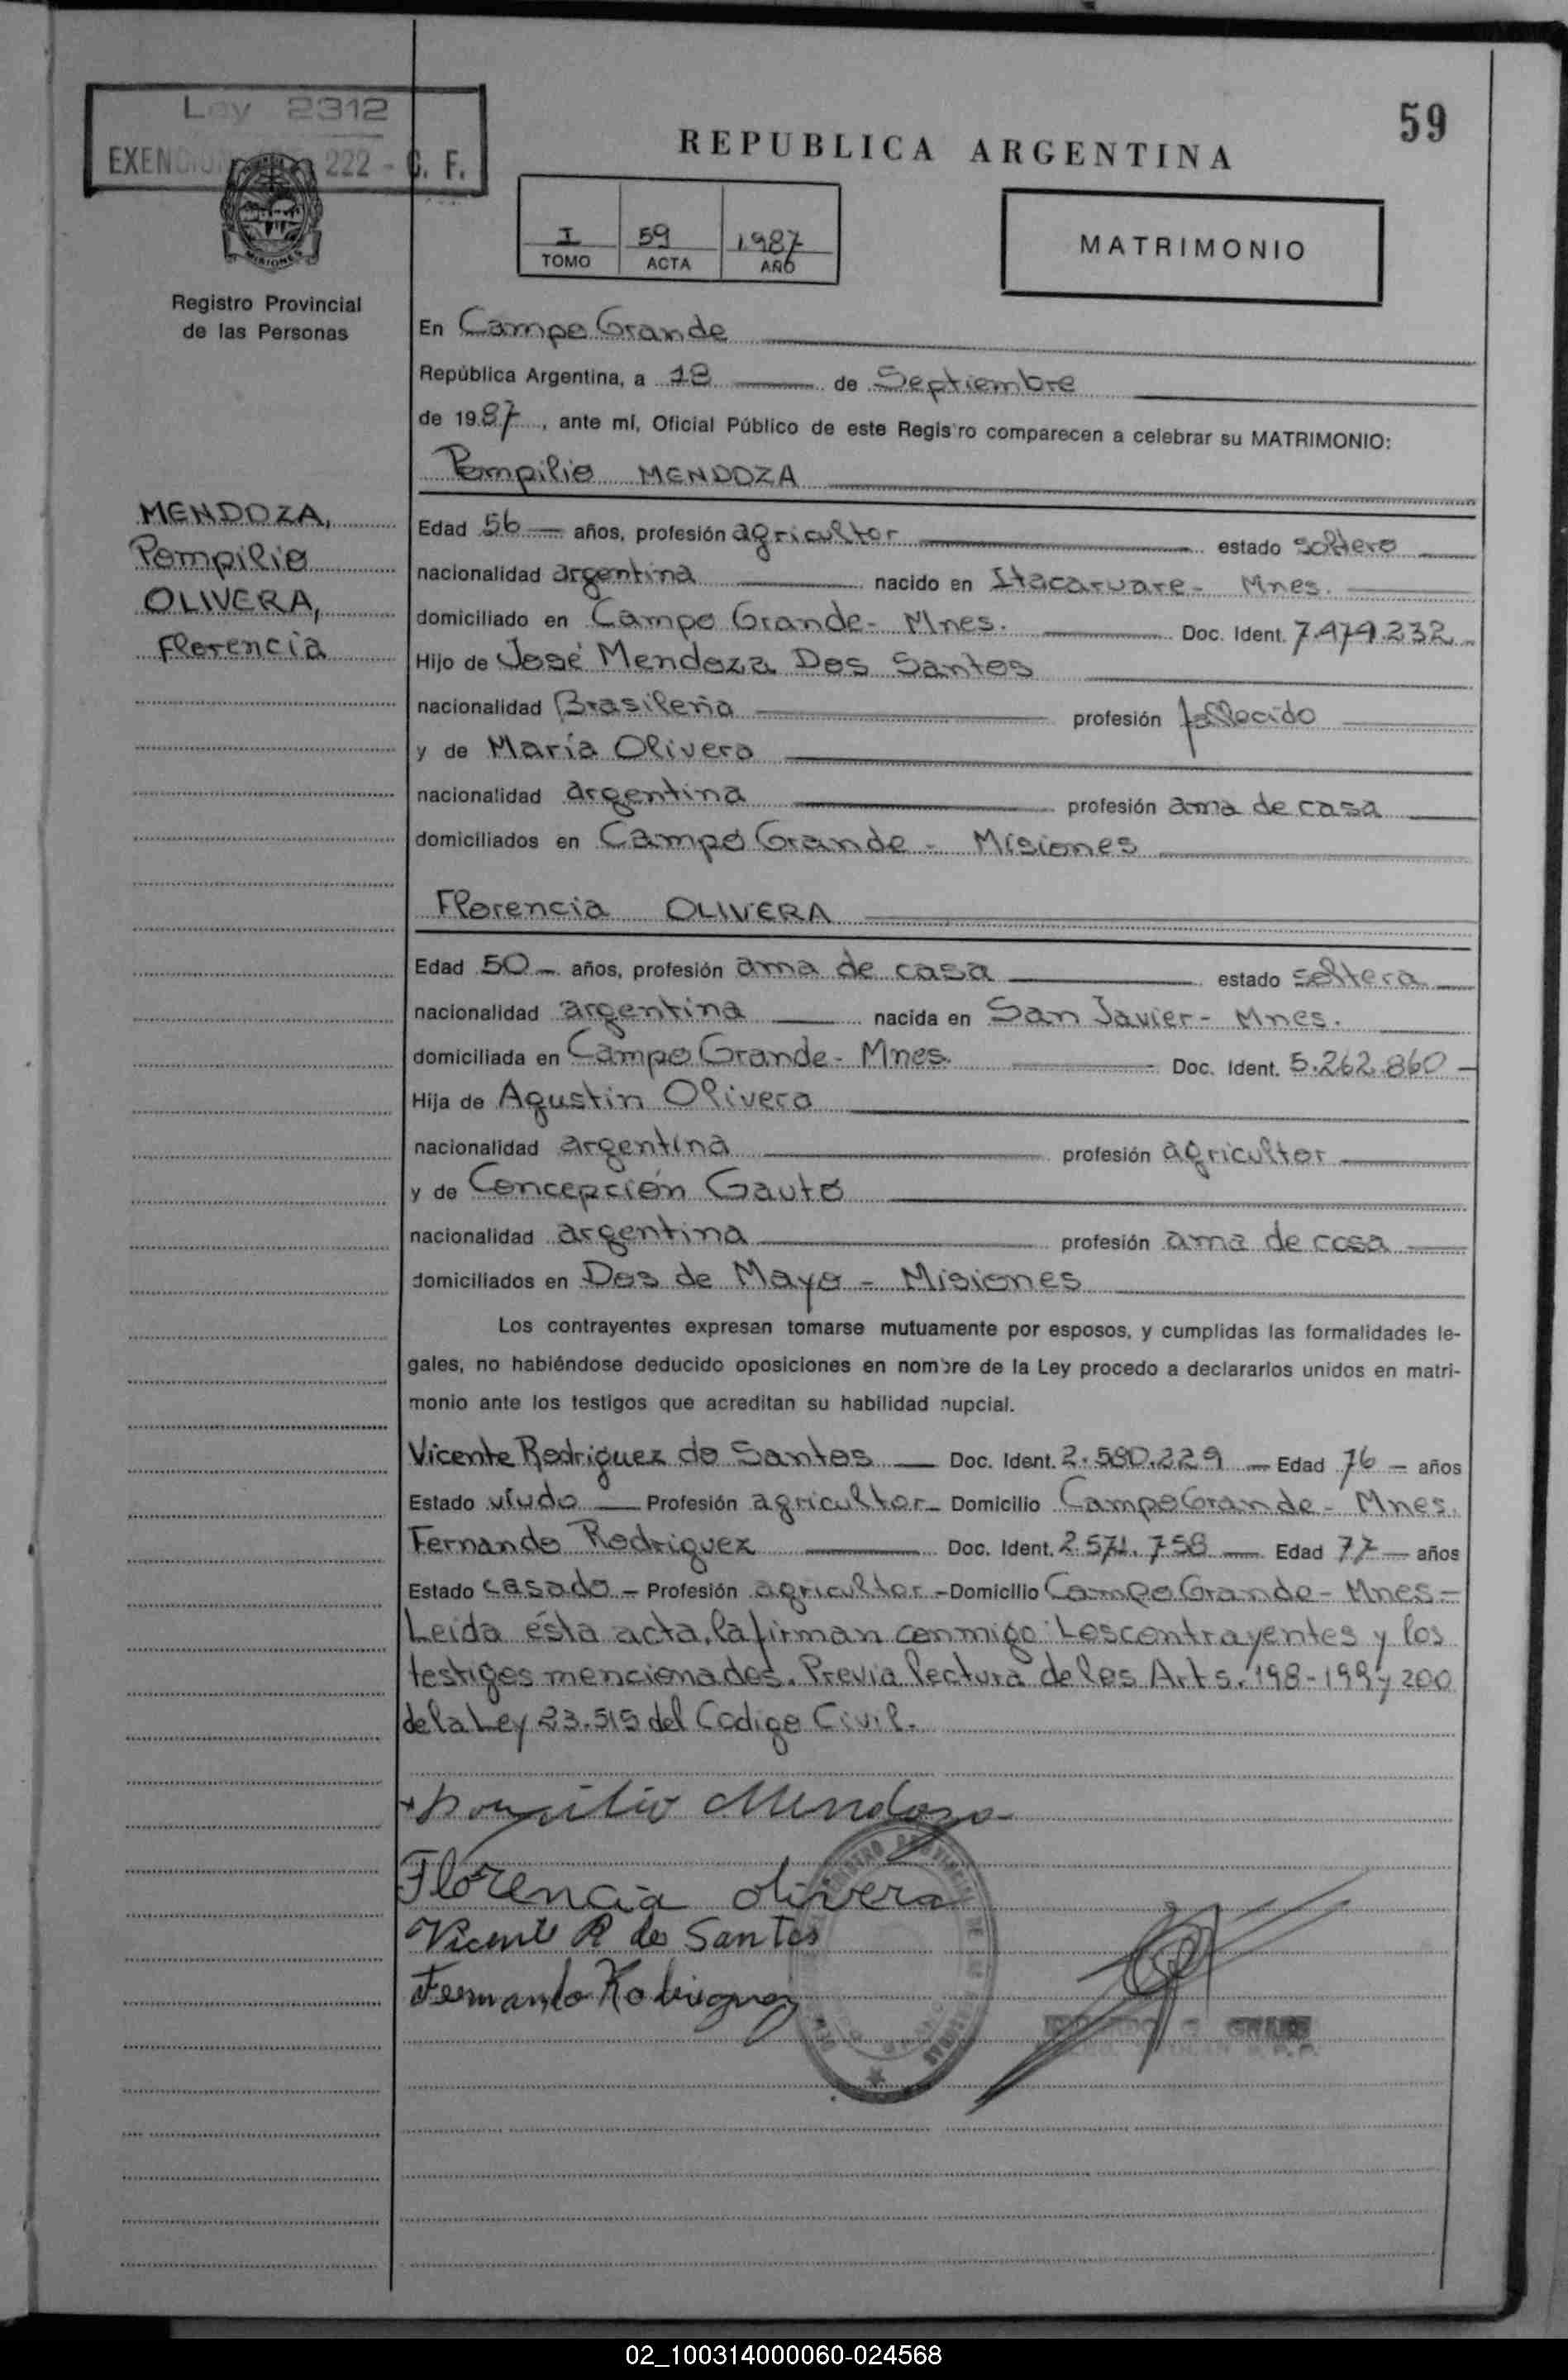 59
Ley 2312
EXENCION 222 - C. F.
REPUBLICA ARGENTINA
MISIONES
Registro Provincial
de las Personas
I 59 1987
TOMO ACTA AÑO
MATRIMONIO
En Campo Grande
República Argentina, a 18 de Septiembre
de 1987, ante mí, Oficial Público de este Registro comparecen a celebrar su MATRIMONIO:
Pompilio MENDOZA
MENDOZA,
Pompilio
OLIVERA,
Florencia
Edad 56 años, profesión agricultor estado soltero
nacionalidad argentina nacido en Itacaruare - Mnes.
domiciliado en Campo Grande - Mnes. Doc. Ident. 7.474.232
Hijo de José Mendoza Dos Santos
nacionalidad Brasileña profesión fallecido
y de María Olivera
nacionalidad argentina profesión ama de casa
domiciliados en Campo Grande - Misiones
Florencia OLIVERA
Edad 50 años, profesión ama de casa estado soltera
nacionalidad argentina nacida en San Javier - Mnes.
domiciliada en Campo Grande - Mnes. Doc. Ident. 5.262.860
Hija de Agustin Olivera
nacionalidad argentina profesión agricultor
y de Concepción Gauto
nacionalidad argentina profesión ama de casa
domiciliados en Dos de Mayo - Misiones
Los contrayentes expresan tomarse mutuamente por esposos, y cumplidas las formalidades le-
gales, no habiéndose deducido oposiciones en nombre de la Ley procedo a declararlos unidos en matri-
monio ante los testigos que acreditan su habilidad nupcial.
Vicente Rodriguez do Santos Doc. Ident. 2.580.229 Edad 76 años
Estado viudo Profesión agricultor Domicilio Campo Grande - Mnes.
Fernando Rodriguez Doc. Ident. 2.571.758 Edad 77 años
Estado casado - Profesión agricultor - Domicilio Campo Grande - Mnes -
Leida ésta acta, la firman conmigo: Los contrayentes y los
testigos mencionados. Previa lectura de los Arts. 198-199 y 200
de la Ley 23.515 del Codigo Civil.
Pompilio Mendoza
Florencia olivera
Vicente R do Santos
Fernando Rodriguez
02_100314000060-024568